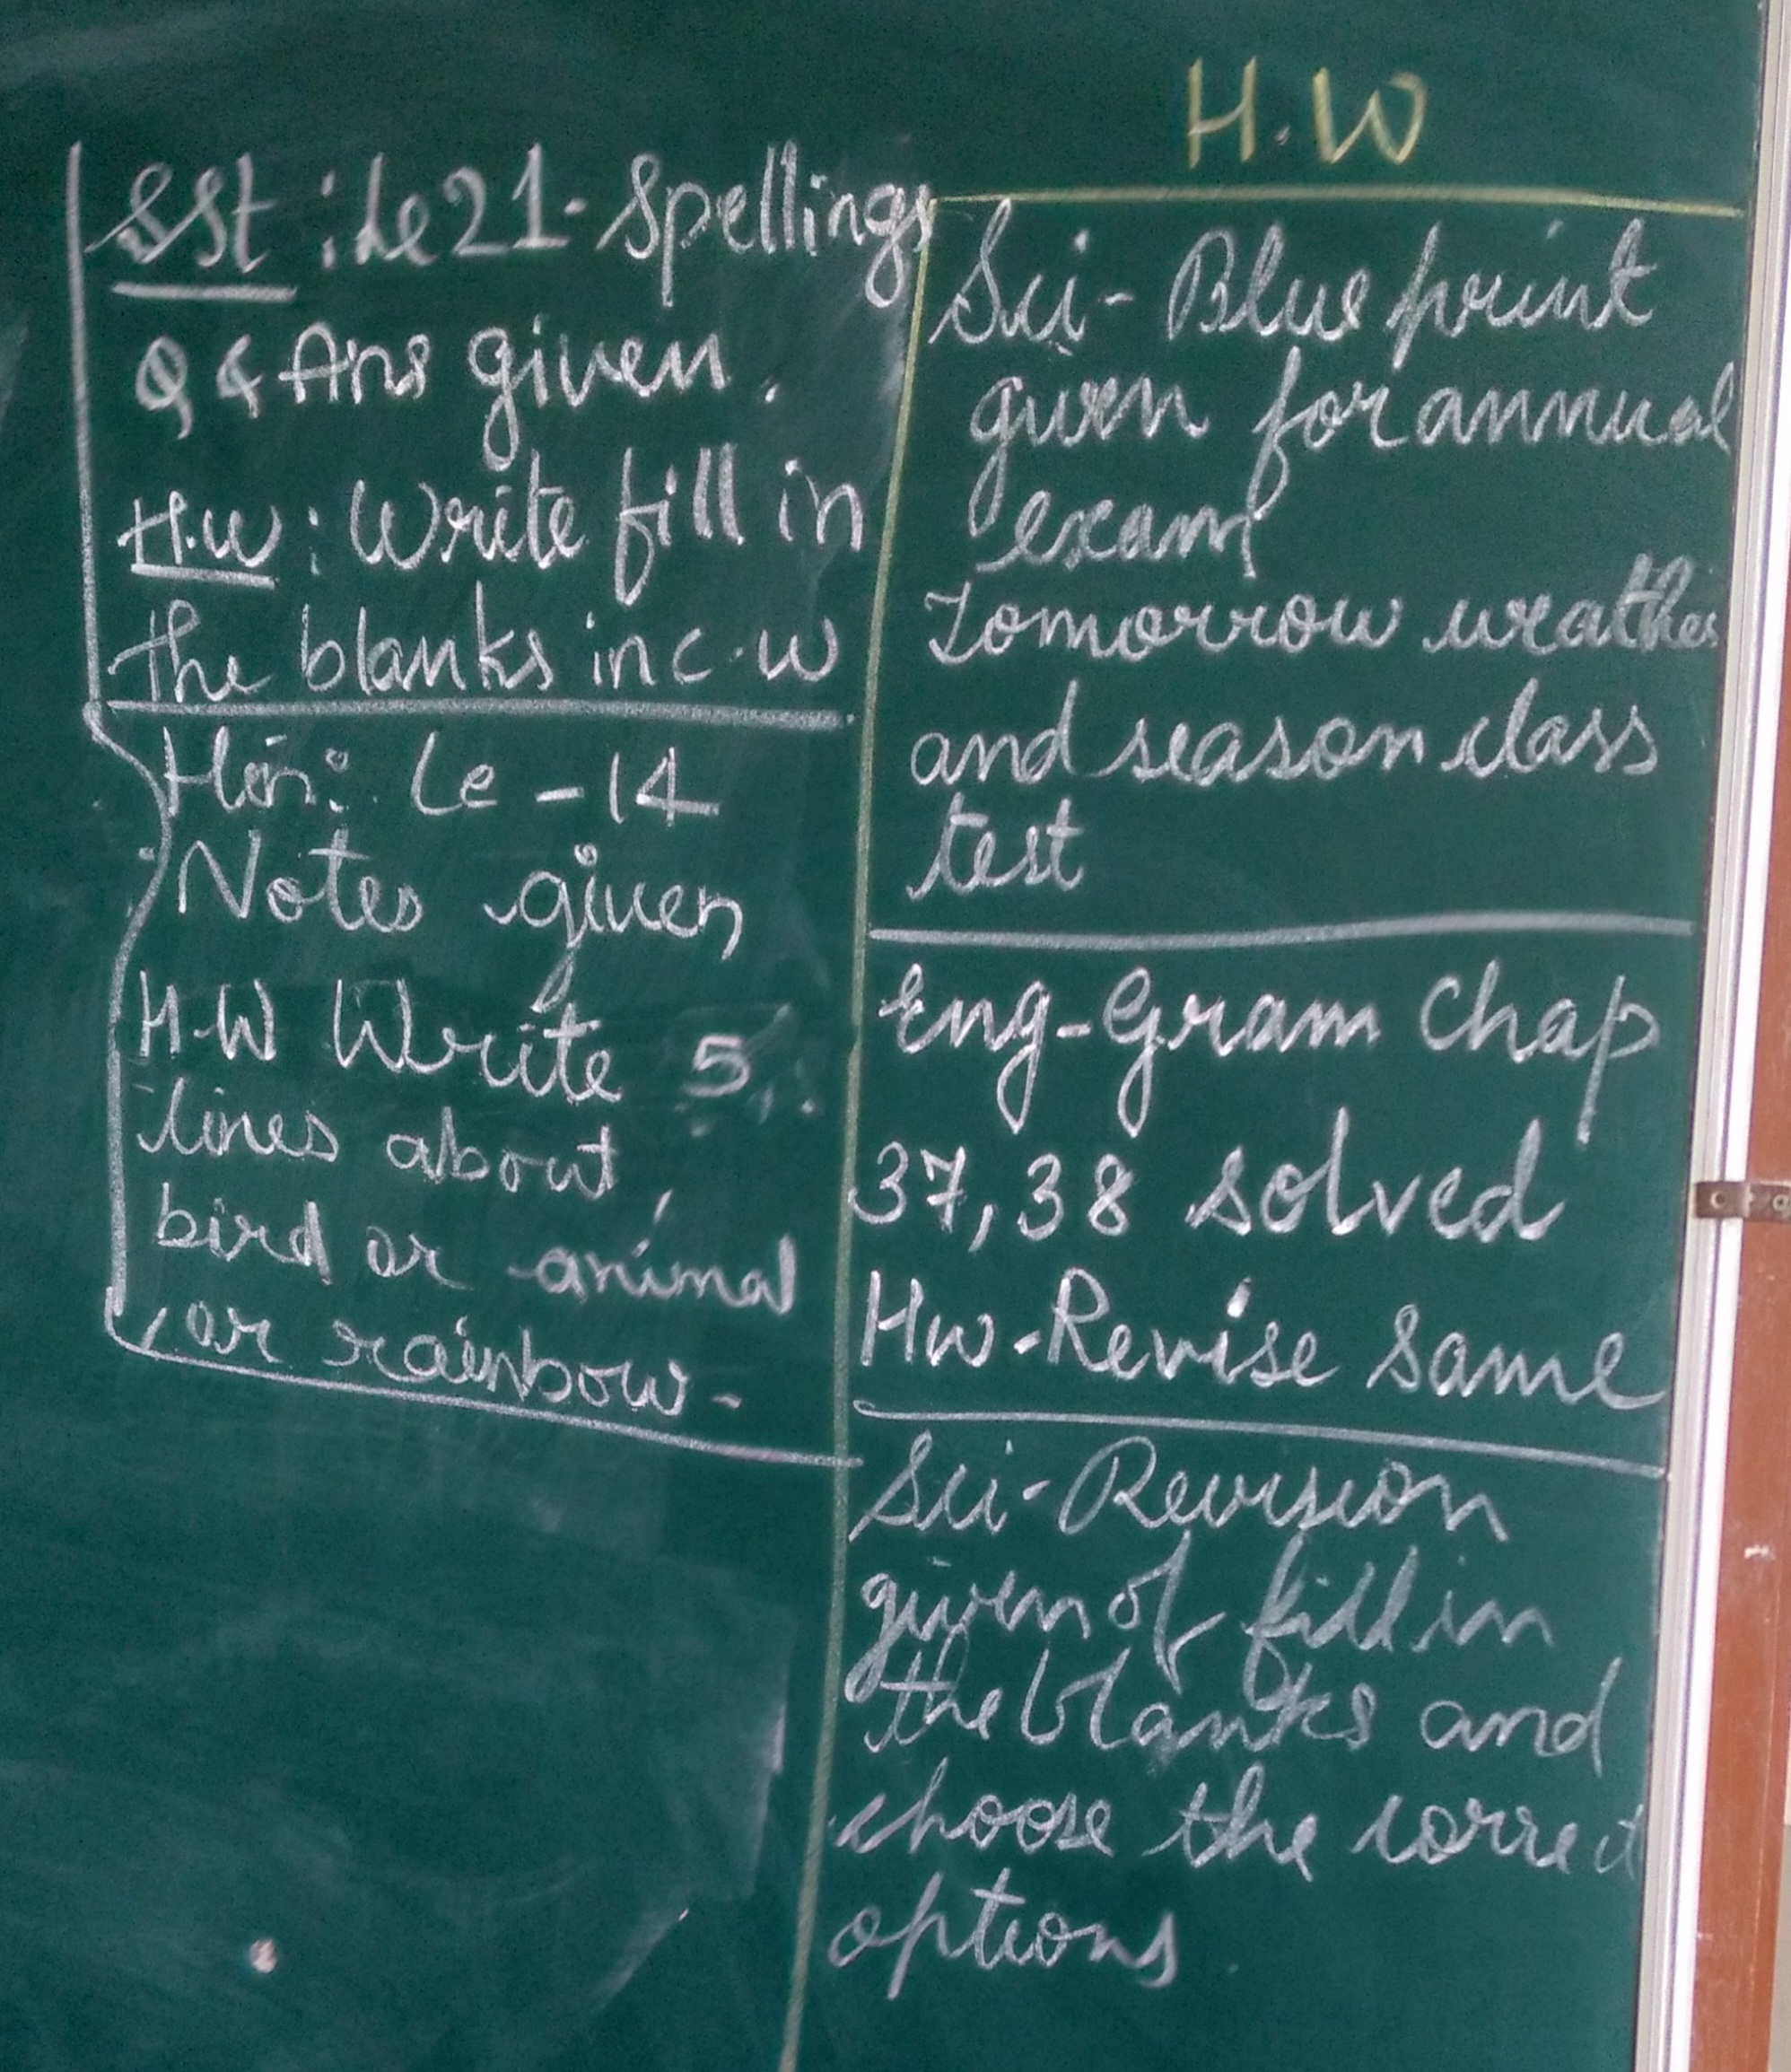 H.W
SSt : Le 21. Spellings
Q & Ans given.
H.W : Write fill in
the blanks in c.w
Hin: Le - 14
Notes given
H.W Write 5
lines about
bird or animal
or rainbow.
Sci - Blue print
given for annual
exam
Tomorrow weather
and season class
test
Eng - Gram Chap
37, 38 solved
Hw - Revise same
Sci - Revision
given of fill in
the blanks and
choose the correct
options